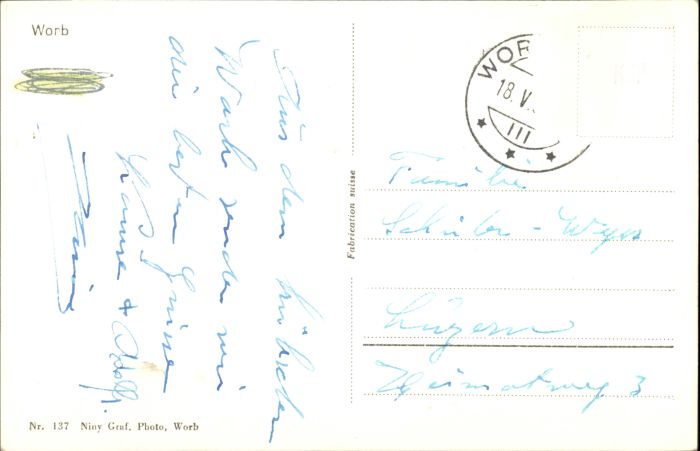 Worb
Aus dem hübschen
Worb senden wir
die besten Grüsse
Hanne + Adolf.
WOR
18. V.
III
Fabrication suisse
Familie
- Wyss
Luzern
Heimatweg 3
Nr. 137 Niny Graf, Photo, Worb